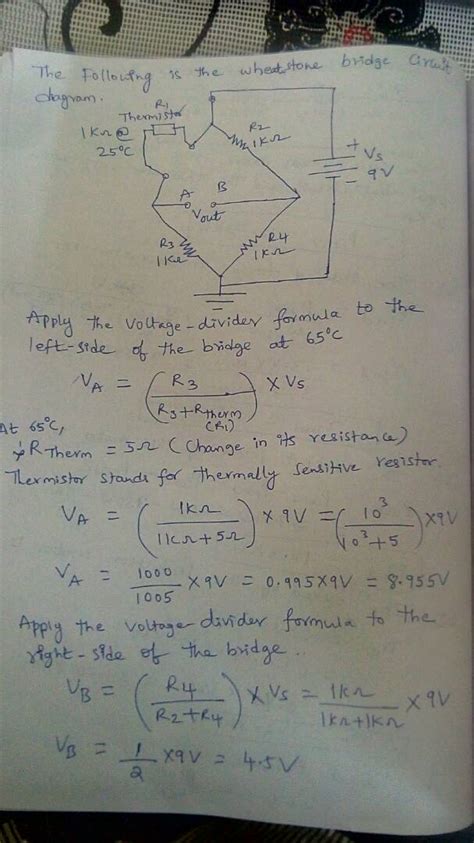 The Following is the wheatstone bridge Circuit
diagram.
R1
Thermistor
1KΩ @
25°C
R2
1KΩ
+
Vs
9V
−
A
B
Vout
R3
1KΩ
R4
1KΩ
Apply the Voltage-divider formula to the
left-side of the bridge at 65°C
VA = (R3 / R3+RTherm (R1)) × Vs
At 65°C,
RTherm = 5Ω (Change in its resistance)
Thermistor stands for thermally sensitive resistor.
VA = (1KΩ / 1KΩ+5Ω) × 9V = (10³ / 10³+5) × 9V
VA = 1000 / 1005 × 9V = 0.995×9V = 8.955V
Apply the voltage-divider formula to the
right-side of the bridge..
VB = (R4 / R2+R4) × Vs = 1KΩ / 1KΩ+1KΩ × 9V
VB = 1 / 2 ×9V = 4.5V